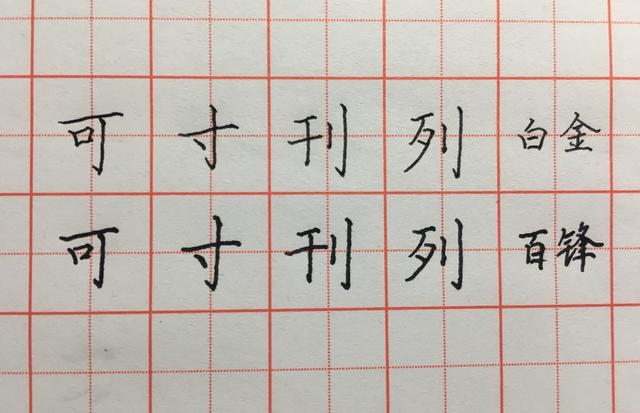 可寸刊列白金
可寸刊列百锋